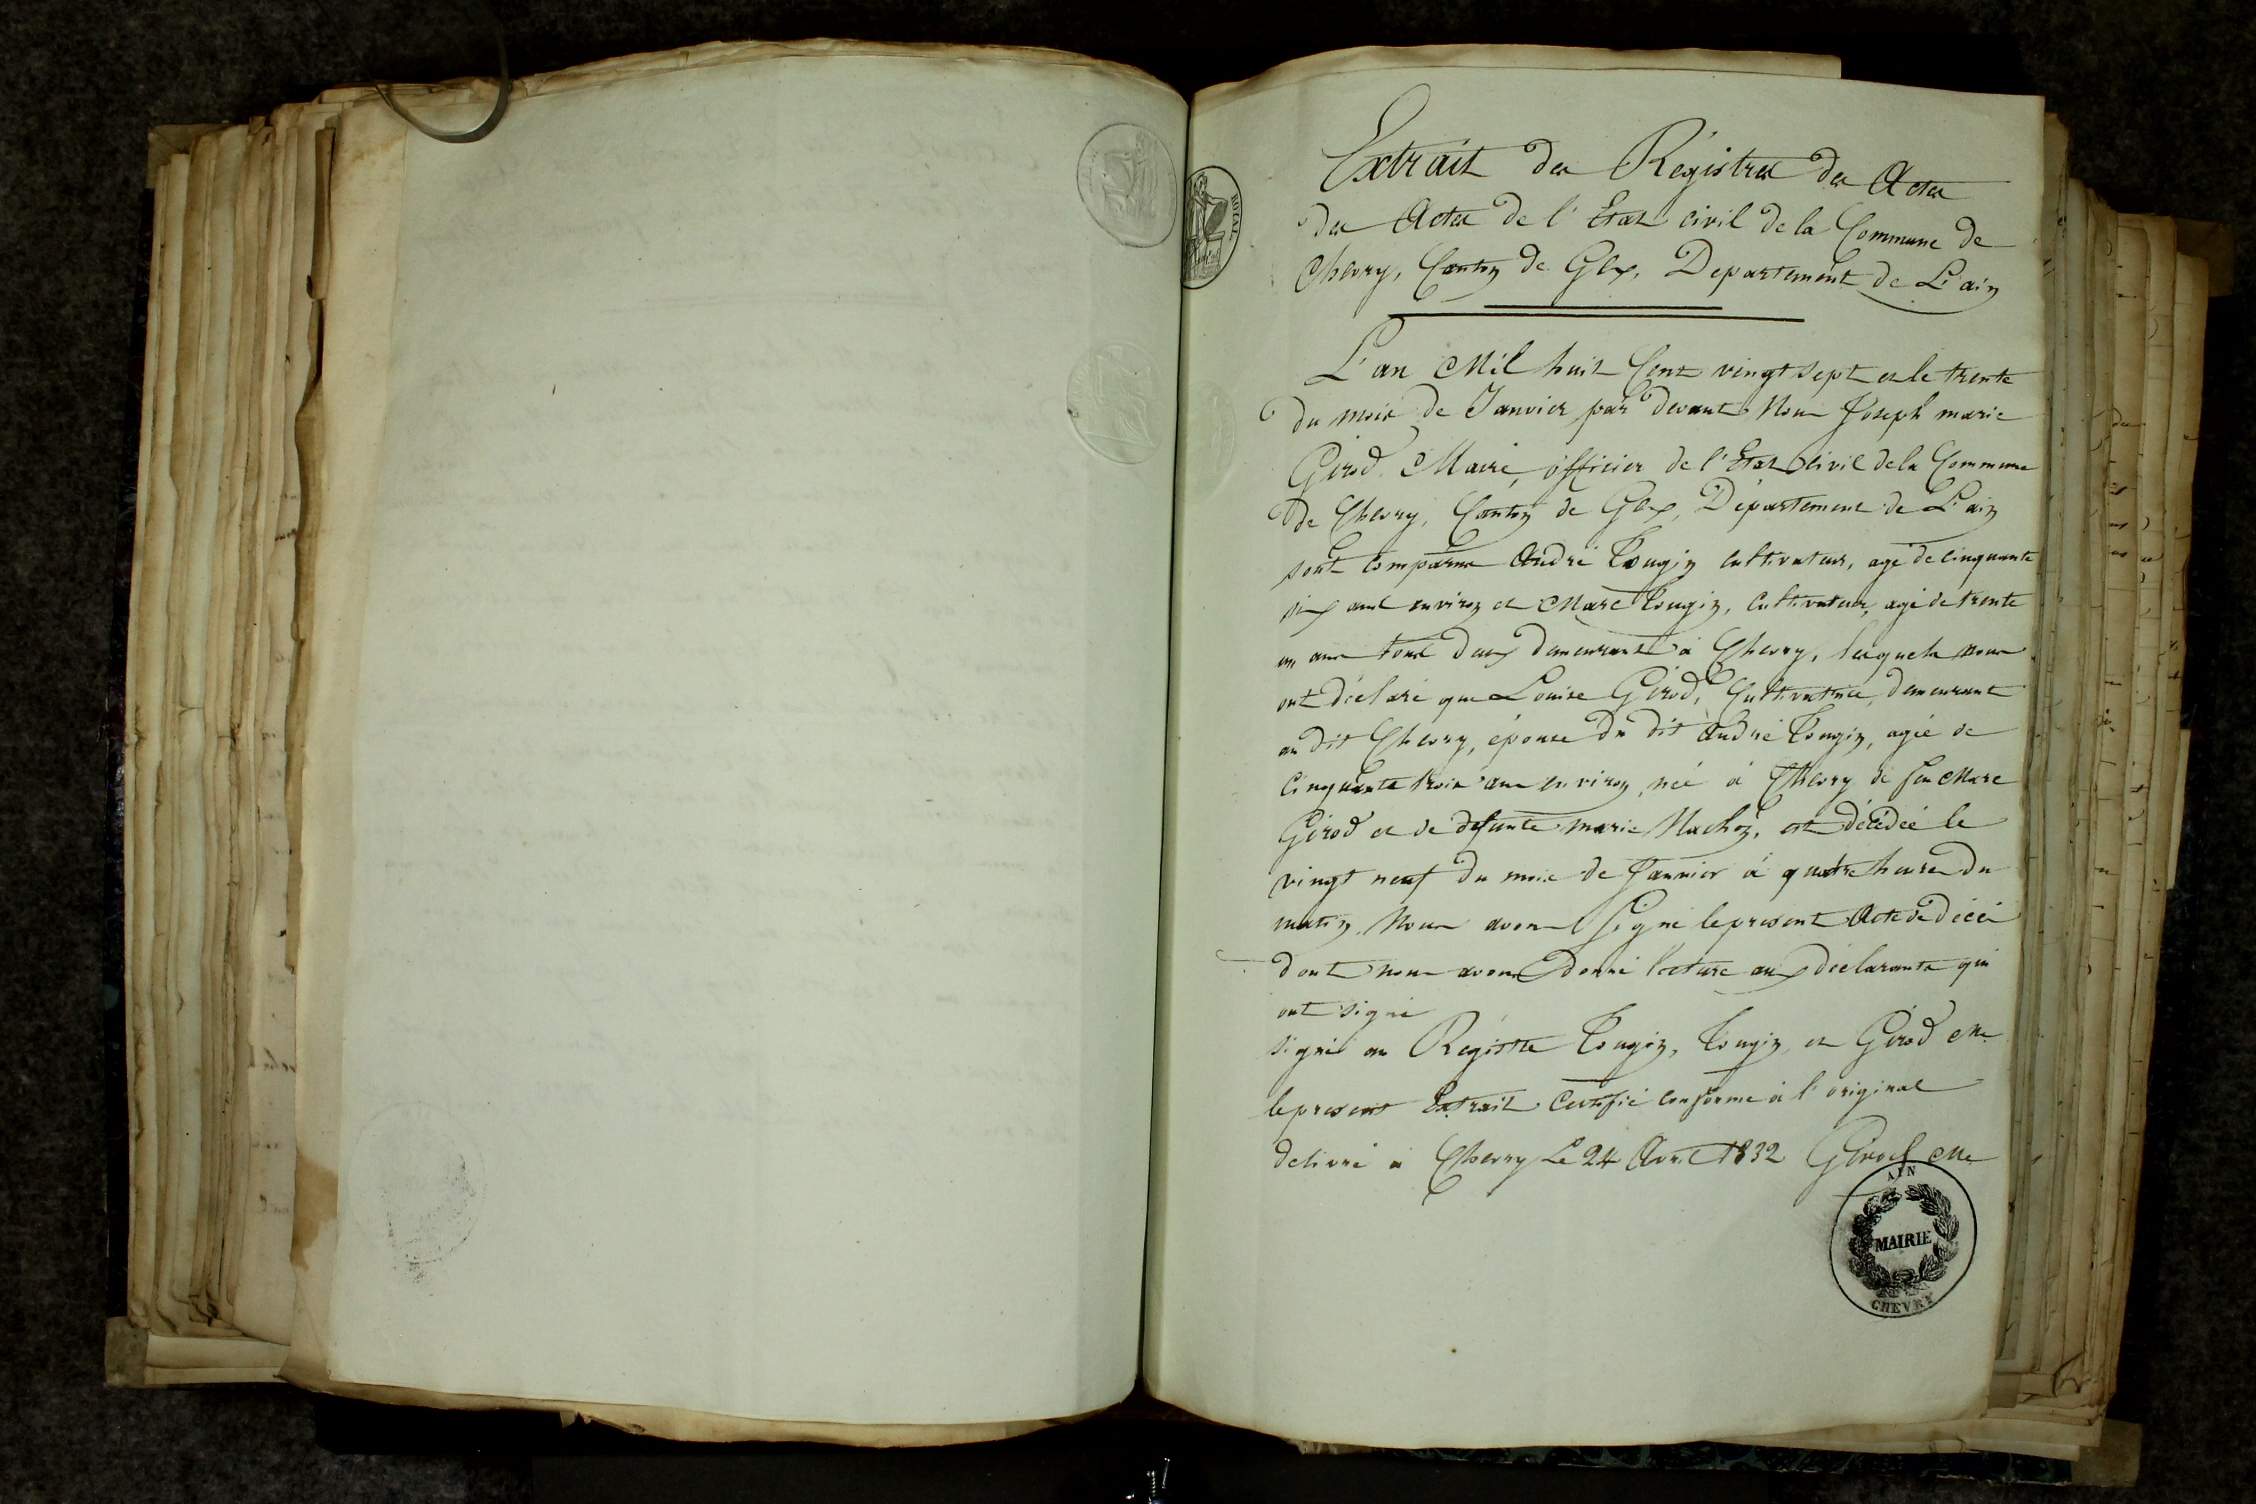 Extrait des Registres des Actes
des Actes de l'Etat civil de la Commune de
Chevry, Canton de Gex, Departement de L'ain
L'an Mil huit Cent vingt sept et le trente
du mois de Janvier par devant Nous Joseph marie
Girod Maire, officier de l'Etat Civil de la Commune
de Chevry, Canton de Gex, Département de L'ain
sont comparus André Tougin cultivateur, agé de cinquante
six ans environ et Marc Tougin, Cultivateur, agé de trente
un ans tous deux demeurant à Chevry, lesquels nous
ont déclaré que Louise Girod, Cultivatrice, demeurant
au dit Chevry, épouse du dit André Tougin, agée de
Cinquante trois ans environ, née à Chevry de feu Marc
Girod et de defunte marie Machoz, est décédée le
vingt neuf du mois de Janvier à quatre heures du
matin. Nous avons Signé le present Acte de décé
dont nous avons donné lecture aux déclarants qui
ont signé
signé au Régistre Tougin, Tougin, et Girod Me
le present Extrait Certifié conforme à l'original
délivré à Chevry Le 24 Avril 1832 Girod Me
ROYAL
AIN
MAIRIE
CHEVRY